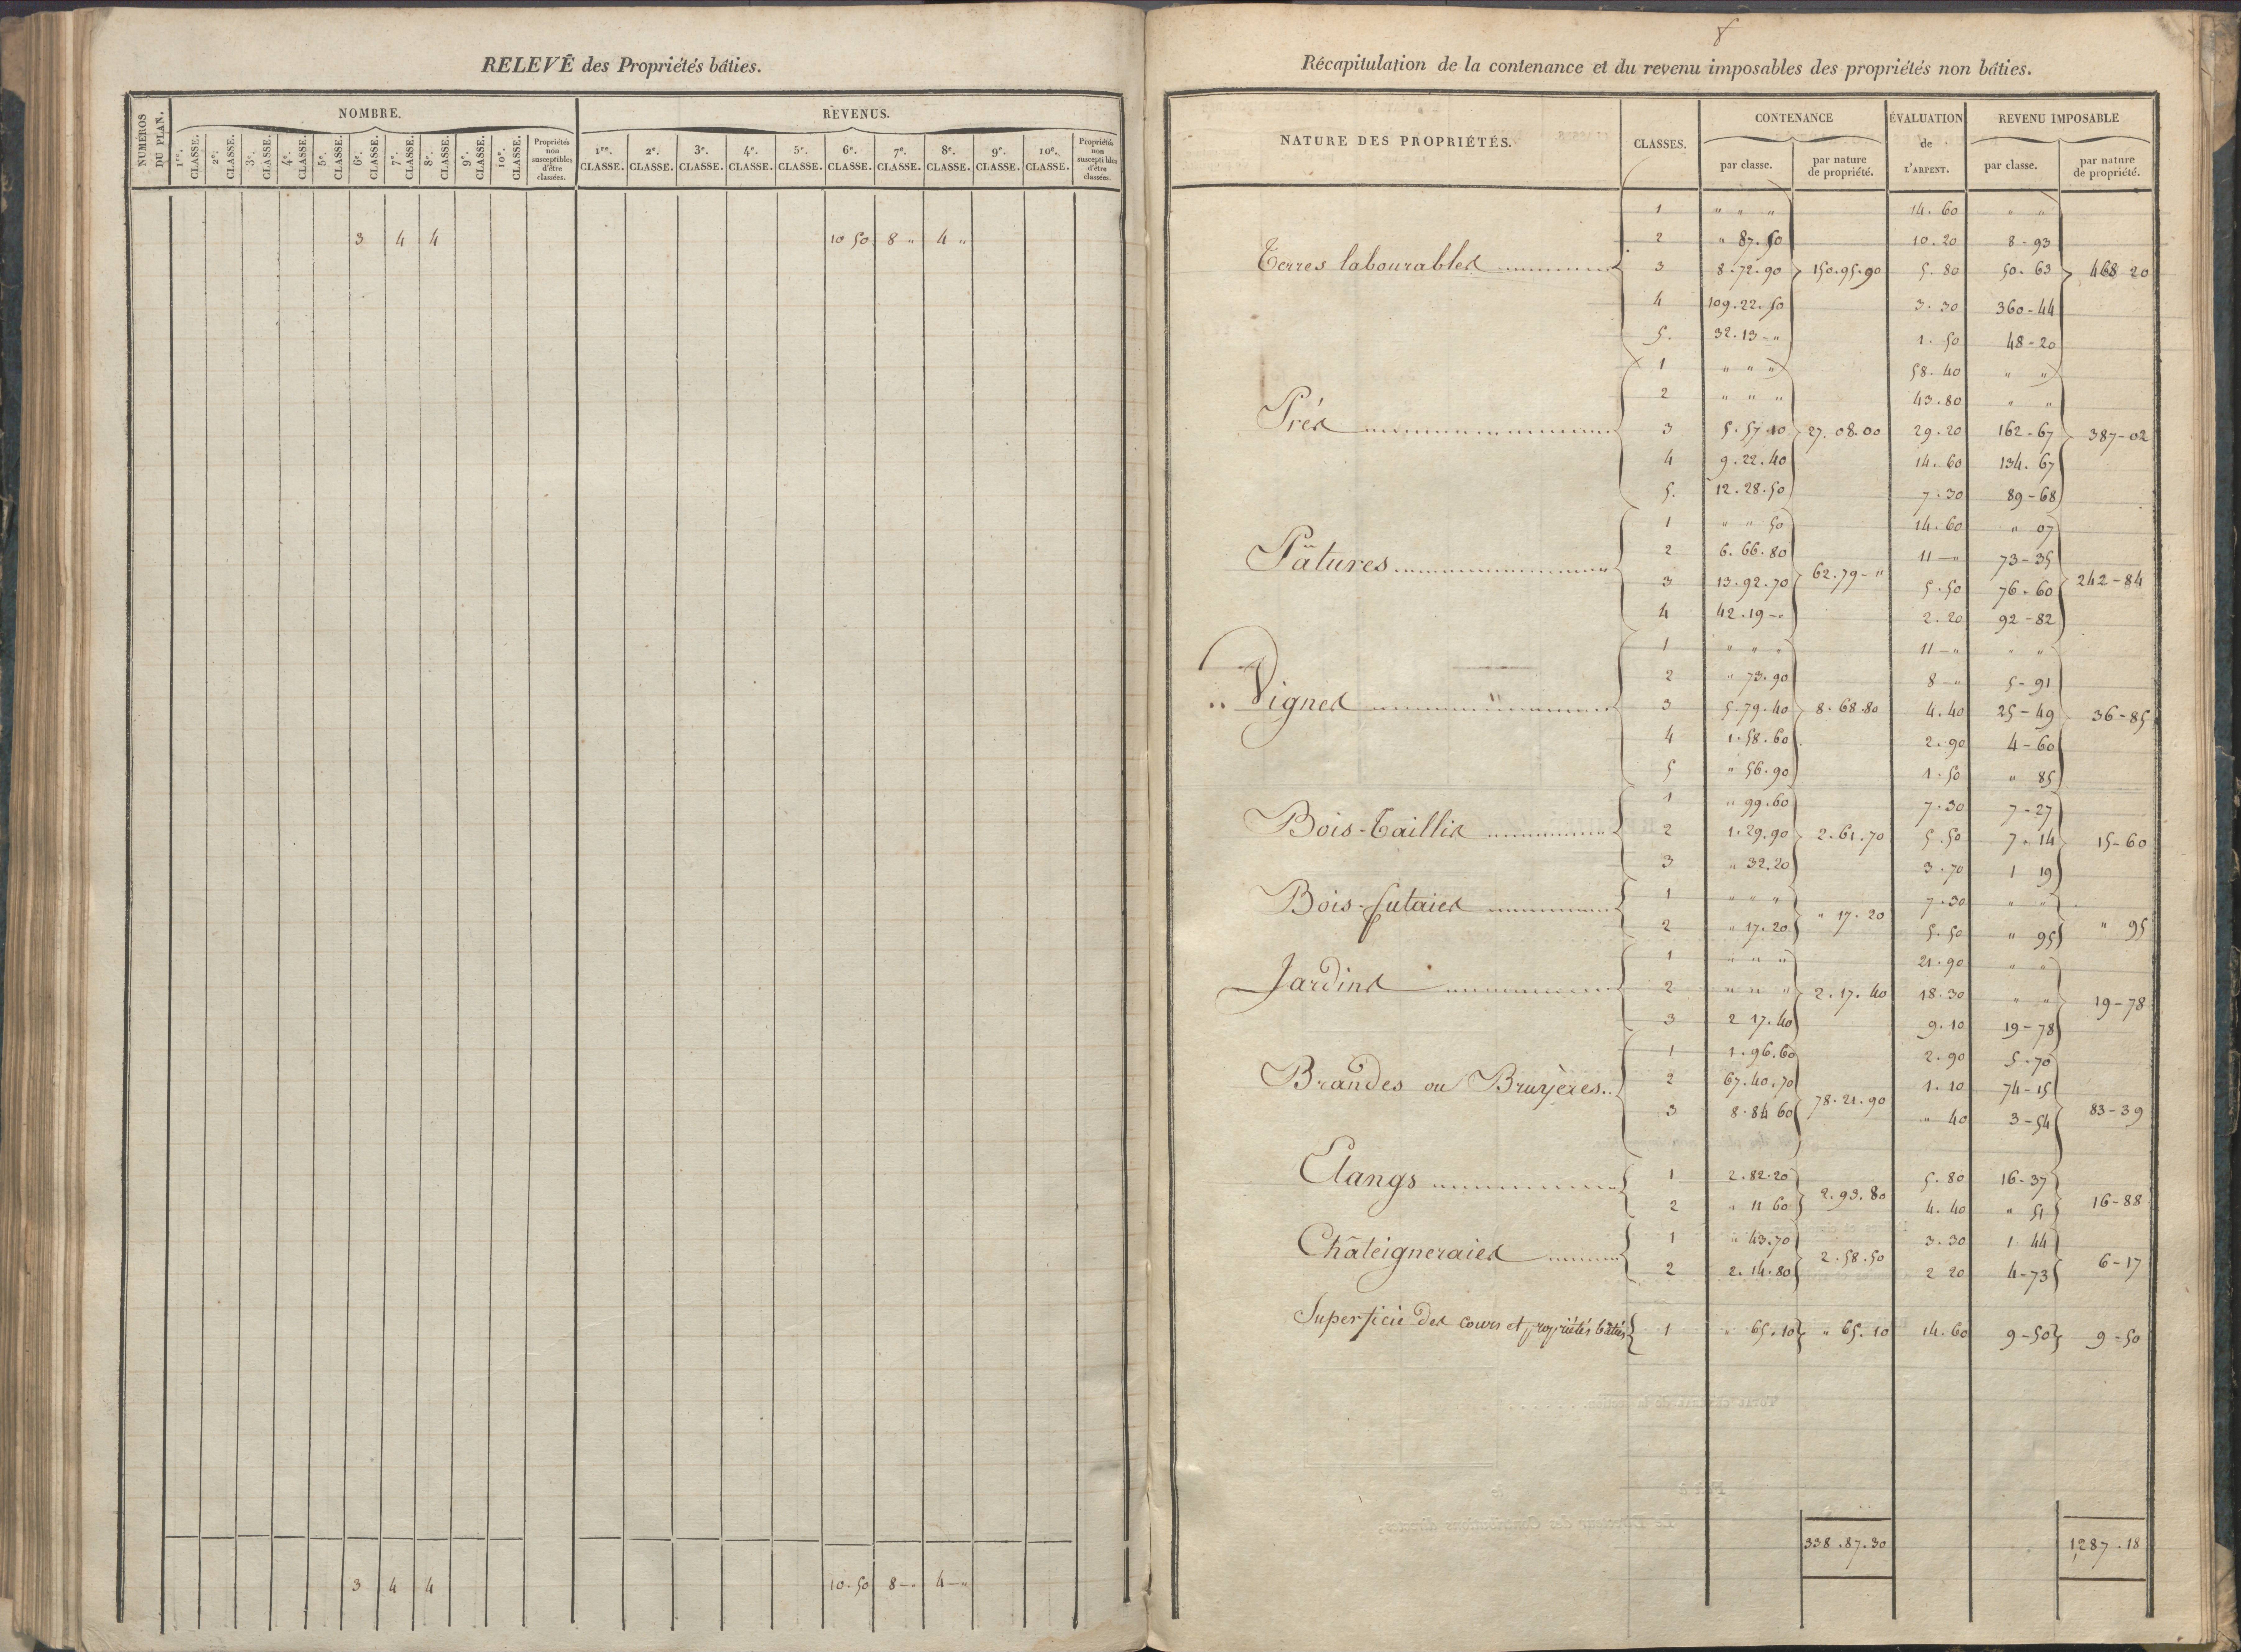 RELEVÉ des Propriétés bâties.
NUMÉROS DU PLAN. NOMBRE. REVENUS.
1re. CLASSE. 2e. CLASSE. 3e. CLASSE. 4e. CLASSE. 5e. CLASSE. 6e. CLASSE. 7e. CLASSE. 8e. CLASSE. 9e. CLASSE. 10e. CLASSE. Propriétés non susceptibles d'être classées. 1re. CLASSE. 2e. CLASSE. 3e. CLASSE. 4e. CLASSE. 5e. CLASSE. 6e. CLASSE. 7e. CLASSE. 8e. CLASSE. 9e. CLASSE. 10e. CLASSE. Propriétés non susceptibles d'être classées.
3 4 4 10 50 8 " 4 "
3 4 4 10-50 8-" 4-"
Récapitulation de la contenance et du revenu imposables des propriétés non bâties.
NATURE DES PROPRIÉTÉS. CLASSES. CONTENANCE ÉVALUATION de L'ARPENT. REVENU IMPOSABLE
par classe. par nature de propriété. par classe. par nature de propriété.
1 " " " 14.60 " "
2 " 87.50 10.20 8-93
Terres labourables 3 8.72.90 150.95.90 5.80 50.63 468 20
4 109.22.50 3.30 360-44
5. 32.13-" 1.50 48-20
1 " " " 58.40 " "
2 " " " 43.80 " "
Prés 3 5.57.10 27.08.00 29.20 162-67 387-02
4 9.22.40 14.60 134.67
5. 12.28.50 7.30 89-68
1 " " 50 14.60 " 07
2 6.66.80 11-" 73-35
Pâtures 3 13.92.70 62.79-" 5.50 76.60 242-84
4 42.19-" 2.20 92-82
1 " " " 11-" " "
2 " 73.90 8-" 5-91
Vignes 3 5.79.40 8.68.80 4.40 25-49 36-85
4 1.58.60 2.90 4-60
5 " 56.90 1.50 " 85
1 " 99.60 7.30 7-27
Bois-Taillis 2 1.29.90 2.61.70 5.50 7.14 15-60
3 " 32.20 3.70 1 19
Bois-futaies 1 " " " " 17.20 7.30 " " " 95
2 " 17.20 5.50 " 95
1 " " " 21.90 " "
Jardins 2 " " " 2.17.40 18.30 " " 19-78
3 2 17.40 9.10 19-78
1 1.96.60 2.90 5.70
Brandes ou Bruyères 2 67.40.70 78.21.90 1.10 74-15 83-39
3 8.84 60 " 40 3-54
Etangs 1 2.82.20 2.93.80 5.80 16-37 16-88
2 " 11 60 4.40 " 51
Châteigneraies 1 " 43.70 2.58.50 3.30 1 44 6-17
2 2.14.80 2 20 4-73
Superficie des cours et propriétés bâties 1 " 65.10 " 65.10 14.60 9-50 9-50
338.87.30 1287.18